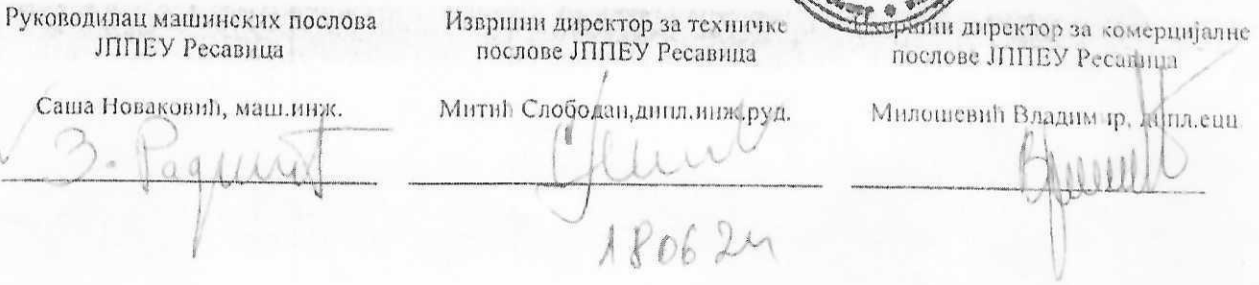 Руководилац машинских послова
ЈППЕУ Ресавица
Саша Новаковић, маш.инж.
З. Радишић
Извршни директор за техничке
послове ЈППЕУ Ресавица
Митић Слободан,дипл.инж.руд.
180624
Извршни директор за комерцијалне
послове ЈППЕУ Ресавица
Милошевић Владимир, дипл.ецц